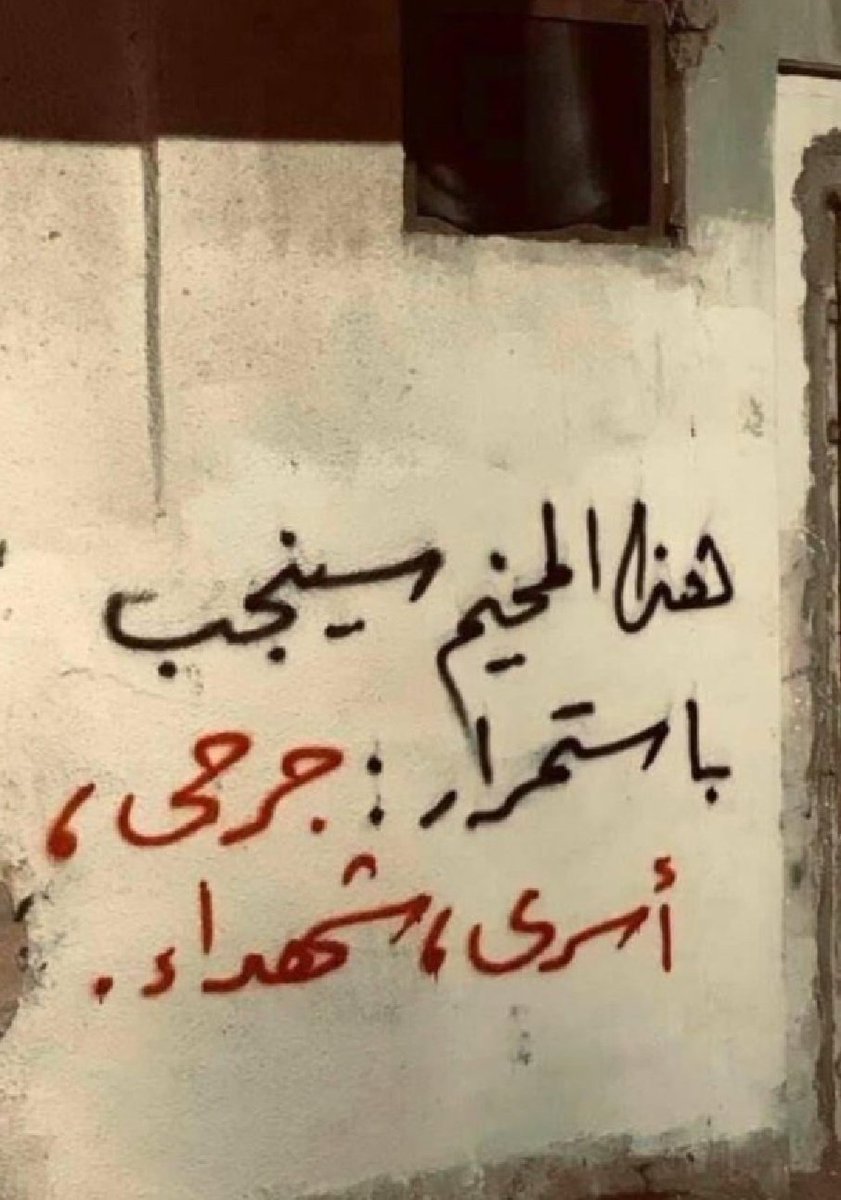 هذا المخيم سينجب
باستمرار : جرحى،
أسرى، شهداء.